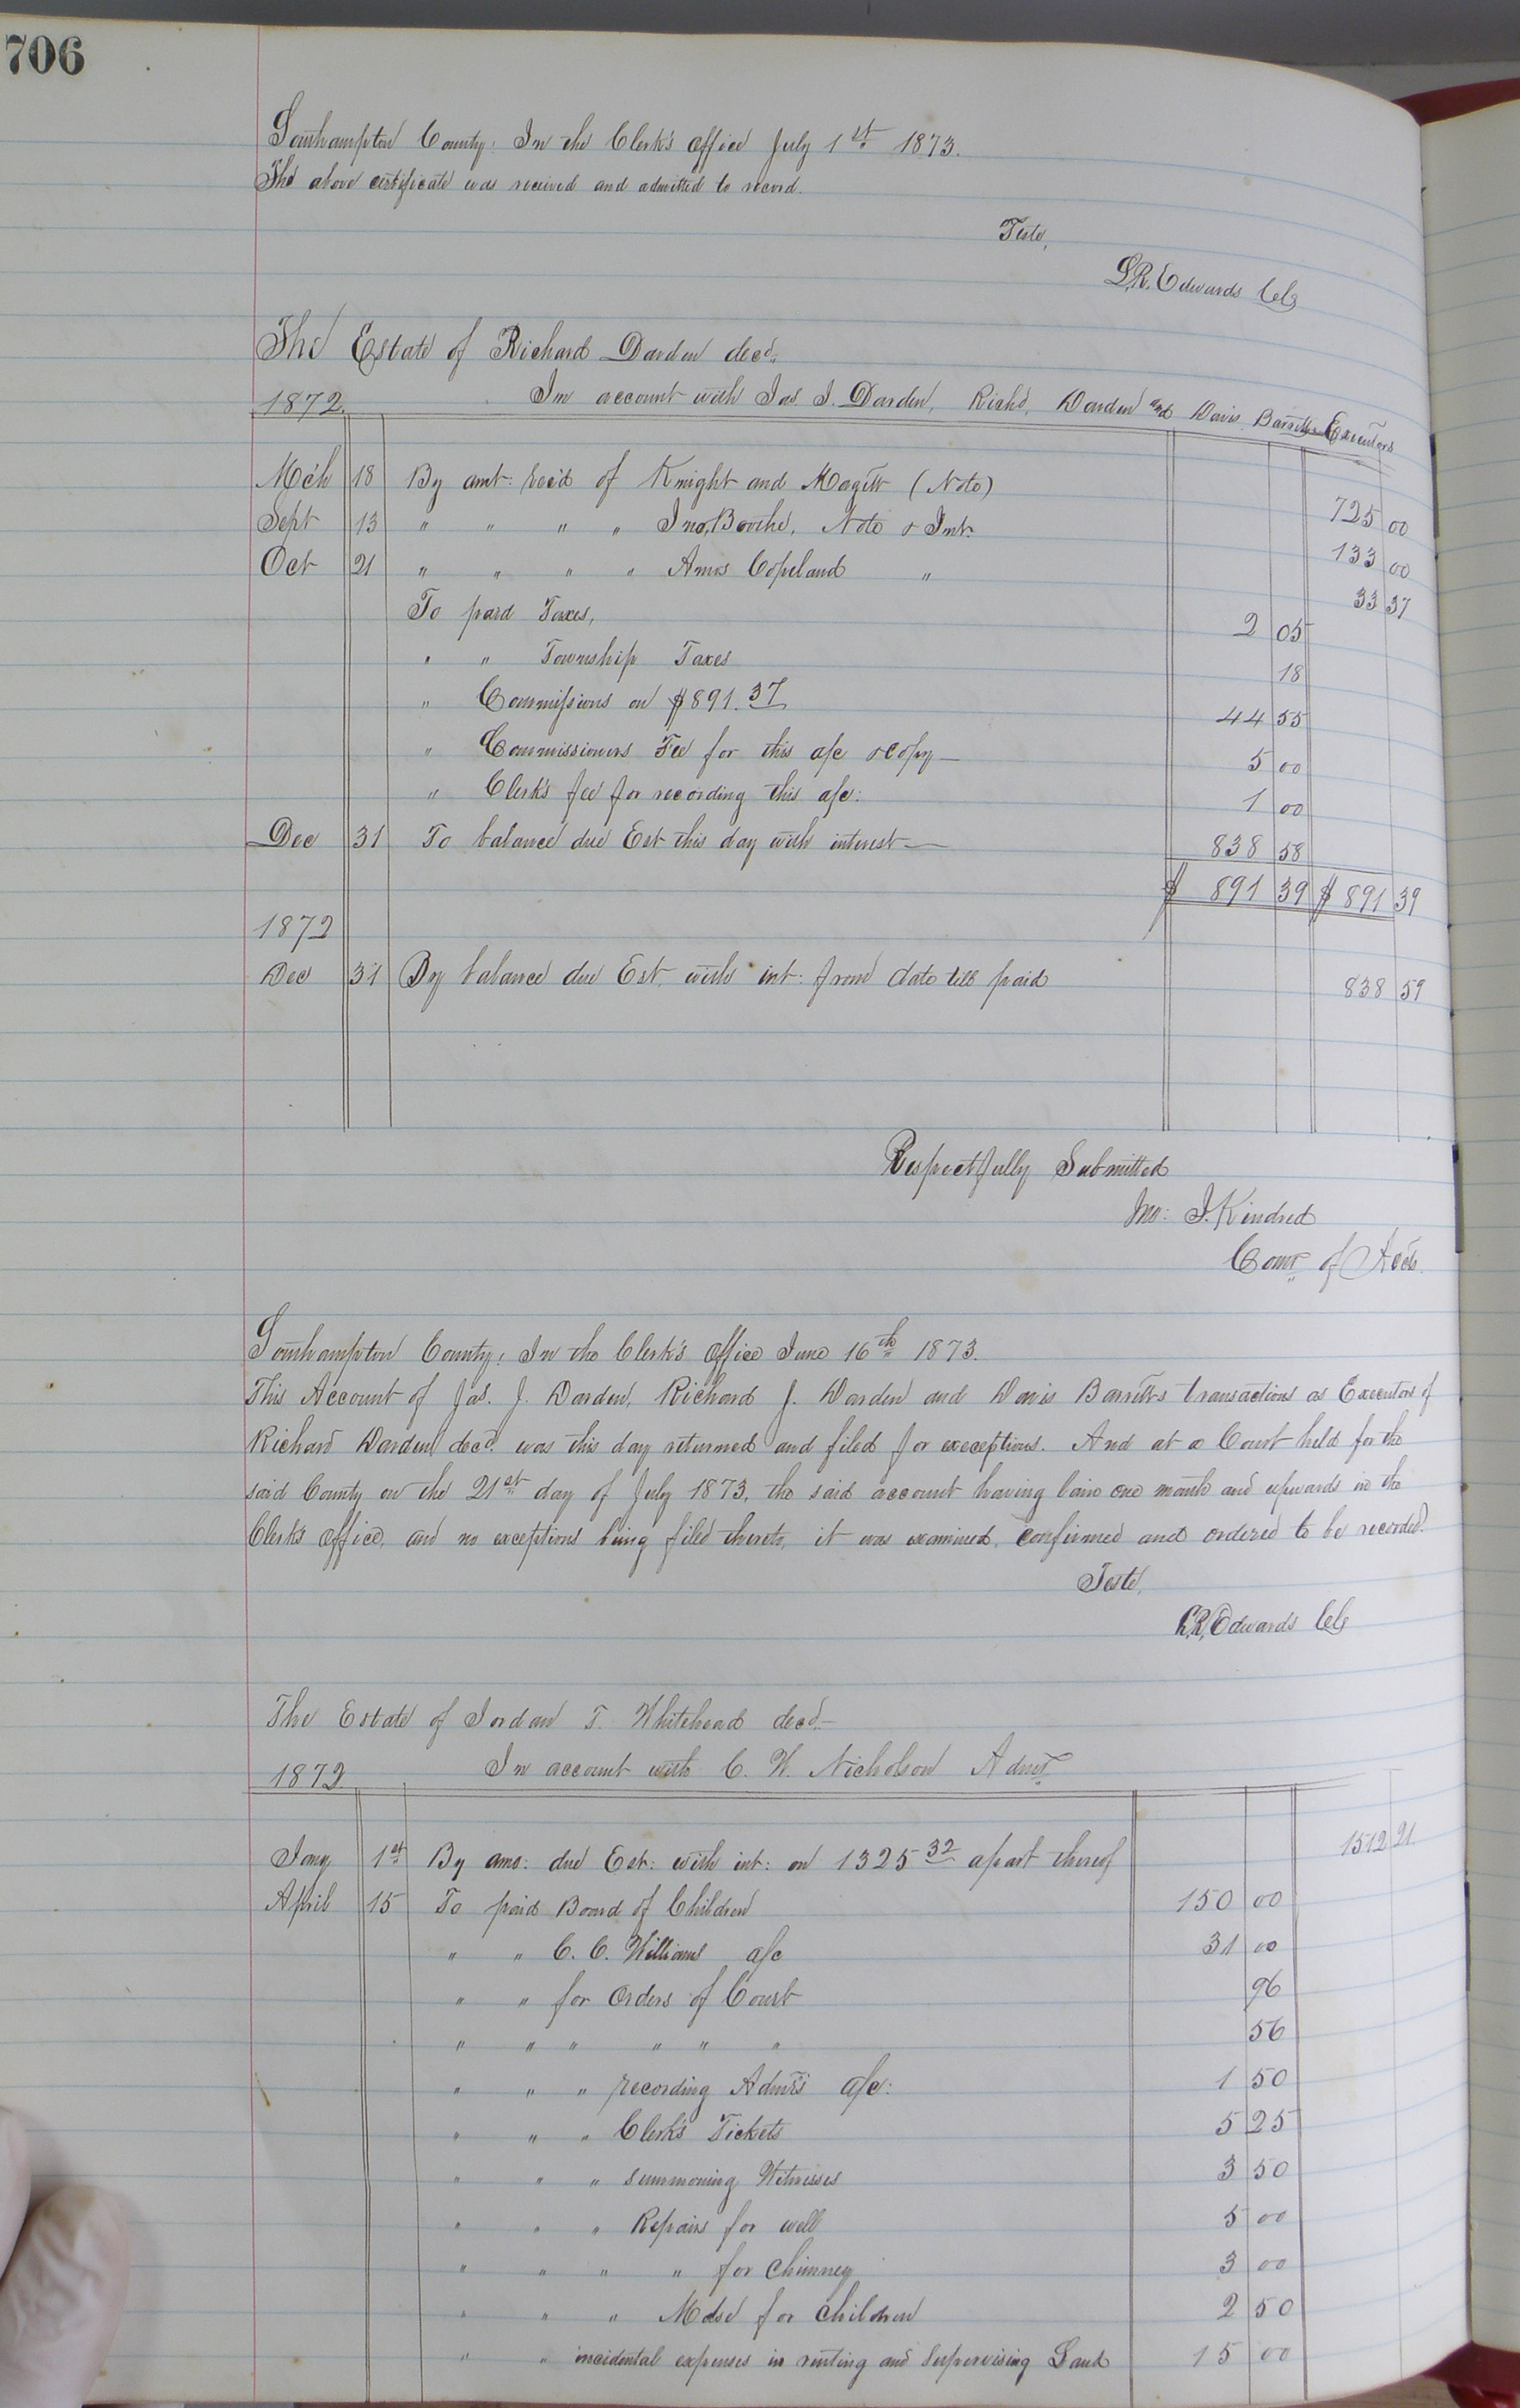 706
Southampton County: In the Clerk's Office July 1st 1873.
The above certificate was received and admitted to record.
Teste,
L.R. Edwards Clk
The Estate of Richard Darden decd.
1872. In account with Jas. J. Darden, Richd. Darden and Davis Barrett Executors
Mch 18 By amt: rec'd of Knight and Magett (Note) 725 00
Sept 13 " " " " Jno. Boothe, Note & Int. 133 00
Oct 21 " " " " Amos Copeland " 33 37
To paid Taxes, 2 05
" " Township Taxes 18
" Commissions on $891.37 44 55
" Commissioners Fee for this a/c & copy 5 00
" Clerk's fee for recording this a/c: 1 00
Dec 31 To balance due Est this day with interest 838 58
$ 891 39 $ 891 39
1872
Dec 31 By balance due Est. with int: from date till paid 838 59
Respectfully Submitted
Jno: J. Kindred
Comr of Accts.
Southampton County: In the Clerk's Office June 16th 1873.
This Account of Jas. J. Darden, Richard J. Darden and Davis Barretts transactions as Executors of
Richard Darden decd. was this day returned and filed for exceptions. And at a Court held for the
said County on the 21st day of July 1873, the said account having lain one month and upwards in the
Clerk's Office, and no exceptions being filed thereto, it was examined, confirmed and ordered to be recorded.
Teste,
L.R. Edwards Clk
The Estate of Jordan T. Whitehead decd.
1872 In account with C. W. Nicholson Admr
Jany 1st By amo: due Est: with int: on 1325 32 a part thereof 1512 21
April 15 To paid Board of Children 150 00
" " C. C. Williams a/c 31 00
" " for Orders of Court 96
" " " " " " 56
" " " recording Admrs a/c: 1 50
" " " Clerk's Tickets 5 25
" " " summoning Witnesses 3 50
" " " Repairs for well 5 00
" " " " for Chimney 3 00
" " " Mdse for Children 2 50
" " incidental expenses in renting and Supervising Land 15 00